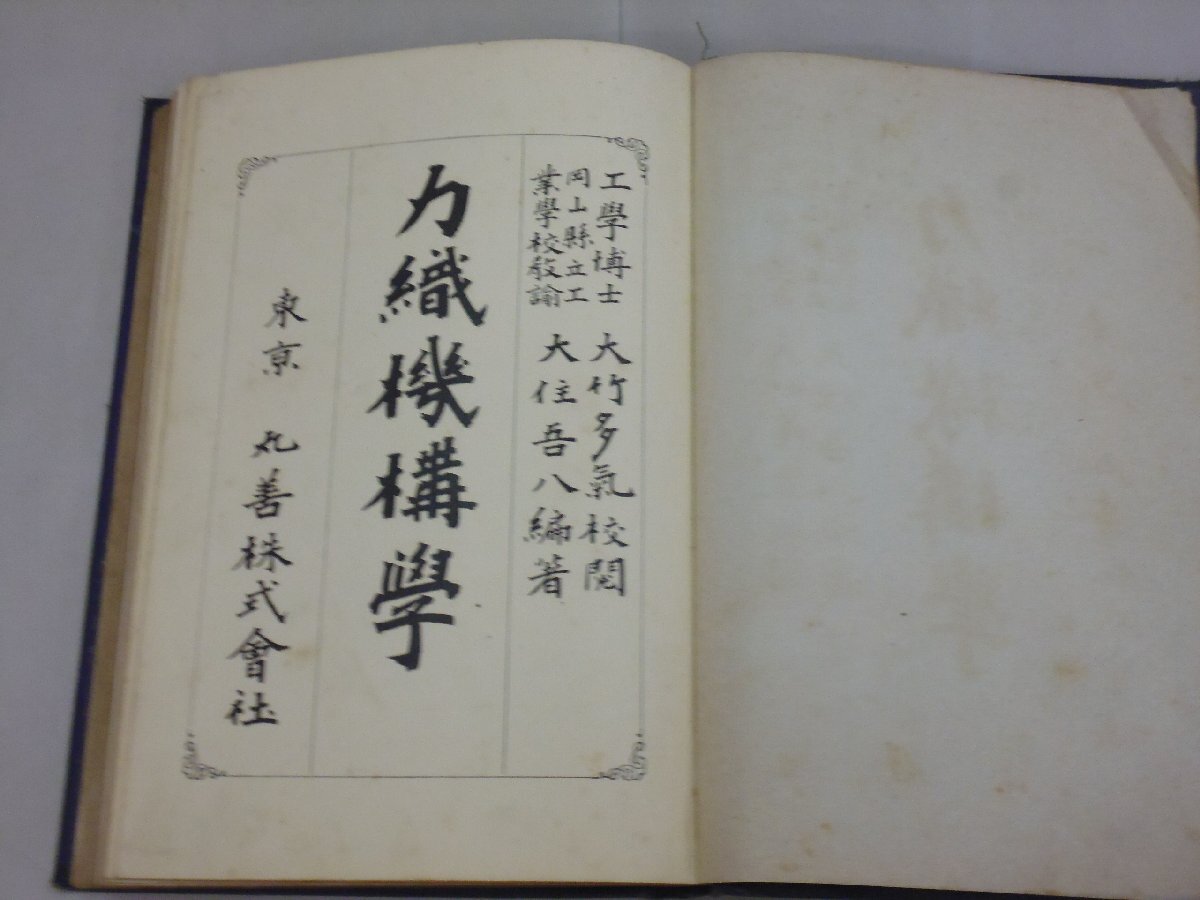 工學博士 大竹多氣校閲
岡山縣立工
業學校教諭 大住吾八編著
力織機構學
東京 丸善株式會社